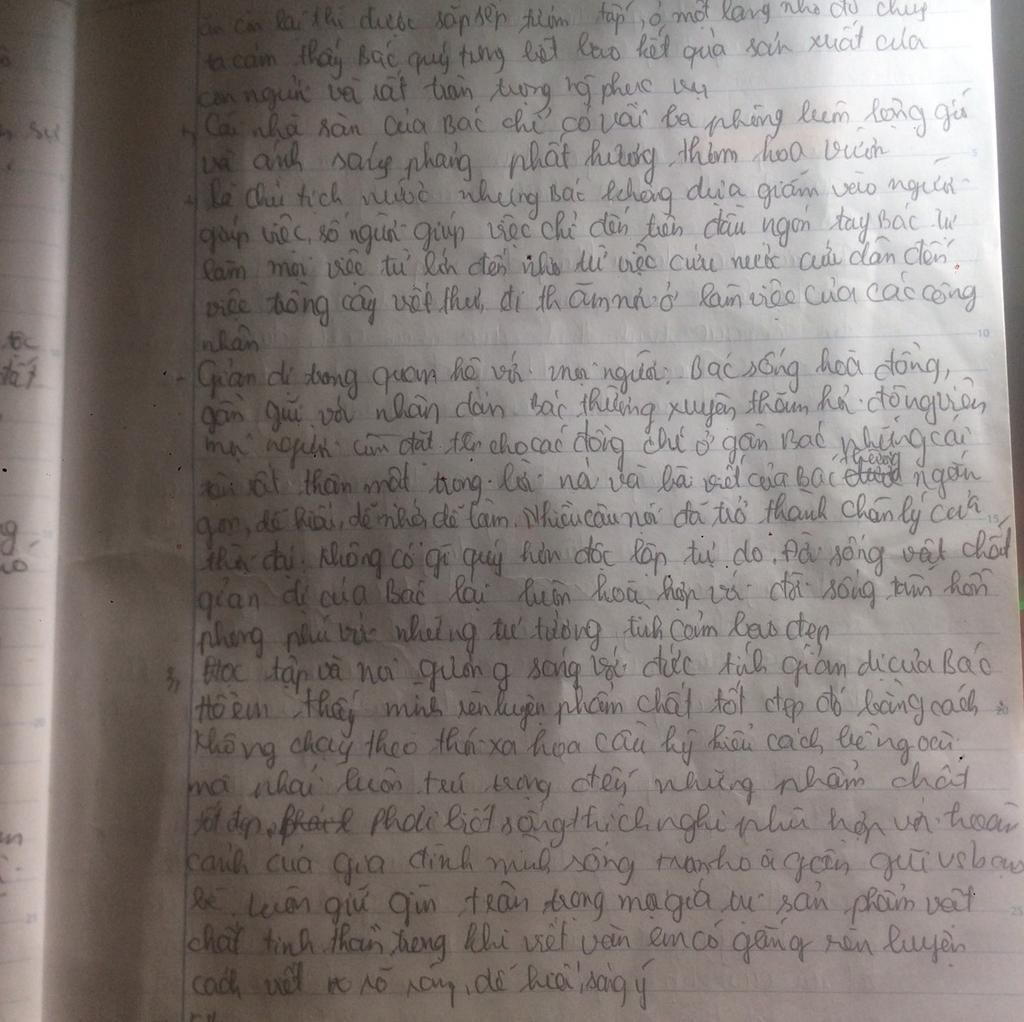 ăn còn lại thì được sắp sếp tươm tấp, ở một làng nhỏ đó chúng
ta cảm thấy Bác quý từng biết bao kết quả sản xuất của
con người và rất trân trọng ng phục vụ
Cái nhà sàn của Bác chỉ có vài ba phòng luôn lộng gió
và ánh sáng phảng phất hương thơm hoa vườn
là chủ tịch nước nhưng Bác không dựa giẫm vào người
giúp việc, số người giúp việc chỉ đếm trên đầu ngón tay Bác tự
làm mọi việc từ lớn đến nhỏ từ việc cứu nước cứu dân đến
việc trồng cây viết thư, đi thăm nơi ở làm việc của các công
nhân
- Giản dị trong quan hệ với mọi người: Bác sống hoà đồng,
gần gũi với nhân dân Bác thường xuyên thăm hỏi động viên
mọi người còn đặt tên cho các đồng chí ở gần Bác những cái
tên rất thân mật trong lời nói và bài viết của Bác thường ngắn
gọn, dễ hiểu, dễ nhớ, dễ làm. Nhiều câu nói đã trở thành chân lý của
thời đại. Không có gì quý hơn độc lập tự do. Đời sống vật chất
giản dị của Bác lại luôn hoà hợp với đời sống tâm hồn
phong phú với những tư tưởng tình cảm cao đẹp
3, Học tập và noi gương sáng với đức tính giản dị của Bác
Hồ em thấy mình rèn luyện phẩm chất tốt đẹp đó bằng cách
không chạy theo thói xa hoa cầu kỳ kiểu cách bề ngoài
mà phải luôn trú trọng đến những phẩm chất
tốt đẹp, phải biết sống thích nghi phù hợp với hoàn
cảnh của gia đình mình sống chan hoà gần gũi vs bạn
bè luôn giữ gìn trân trọng mọi giá trị sản phẩm vật
chất tinh thần, trong khi viết văn em cố gắng rèn luyện
cách viết rõ ràng, dễ hiểu, sáng ý